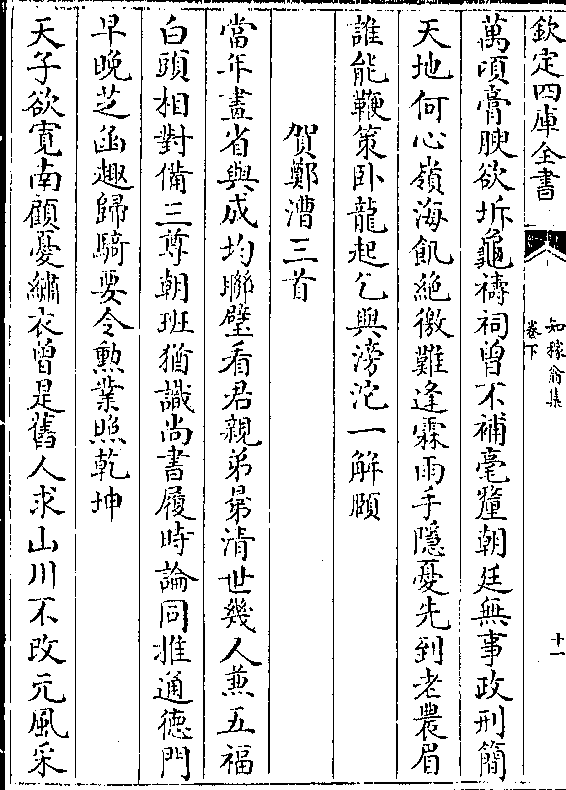 欽定四庫全書
知稼翁集
卷下
十一
萬頃膏腴欲坼龜禱祠曾不補毫釐朝廷無事政刑簡
天地何心嶺海飢絶徼難逢霖雨手隱憂先到老農眉
誰能鞭策卧龍起乞與滂沱一解頤
賀鄭漕三首
當年畫省與成均聯璧看君親弟晜清世幾人兼五福
白頭相對備三尊朝班猶識尚書履時論同推通德門
早晚芝函趣歸騎要令勲業照乾坤
天子欲寛南顧憂繡衣曾是舊人求山川不改元風采